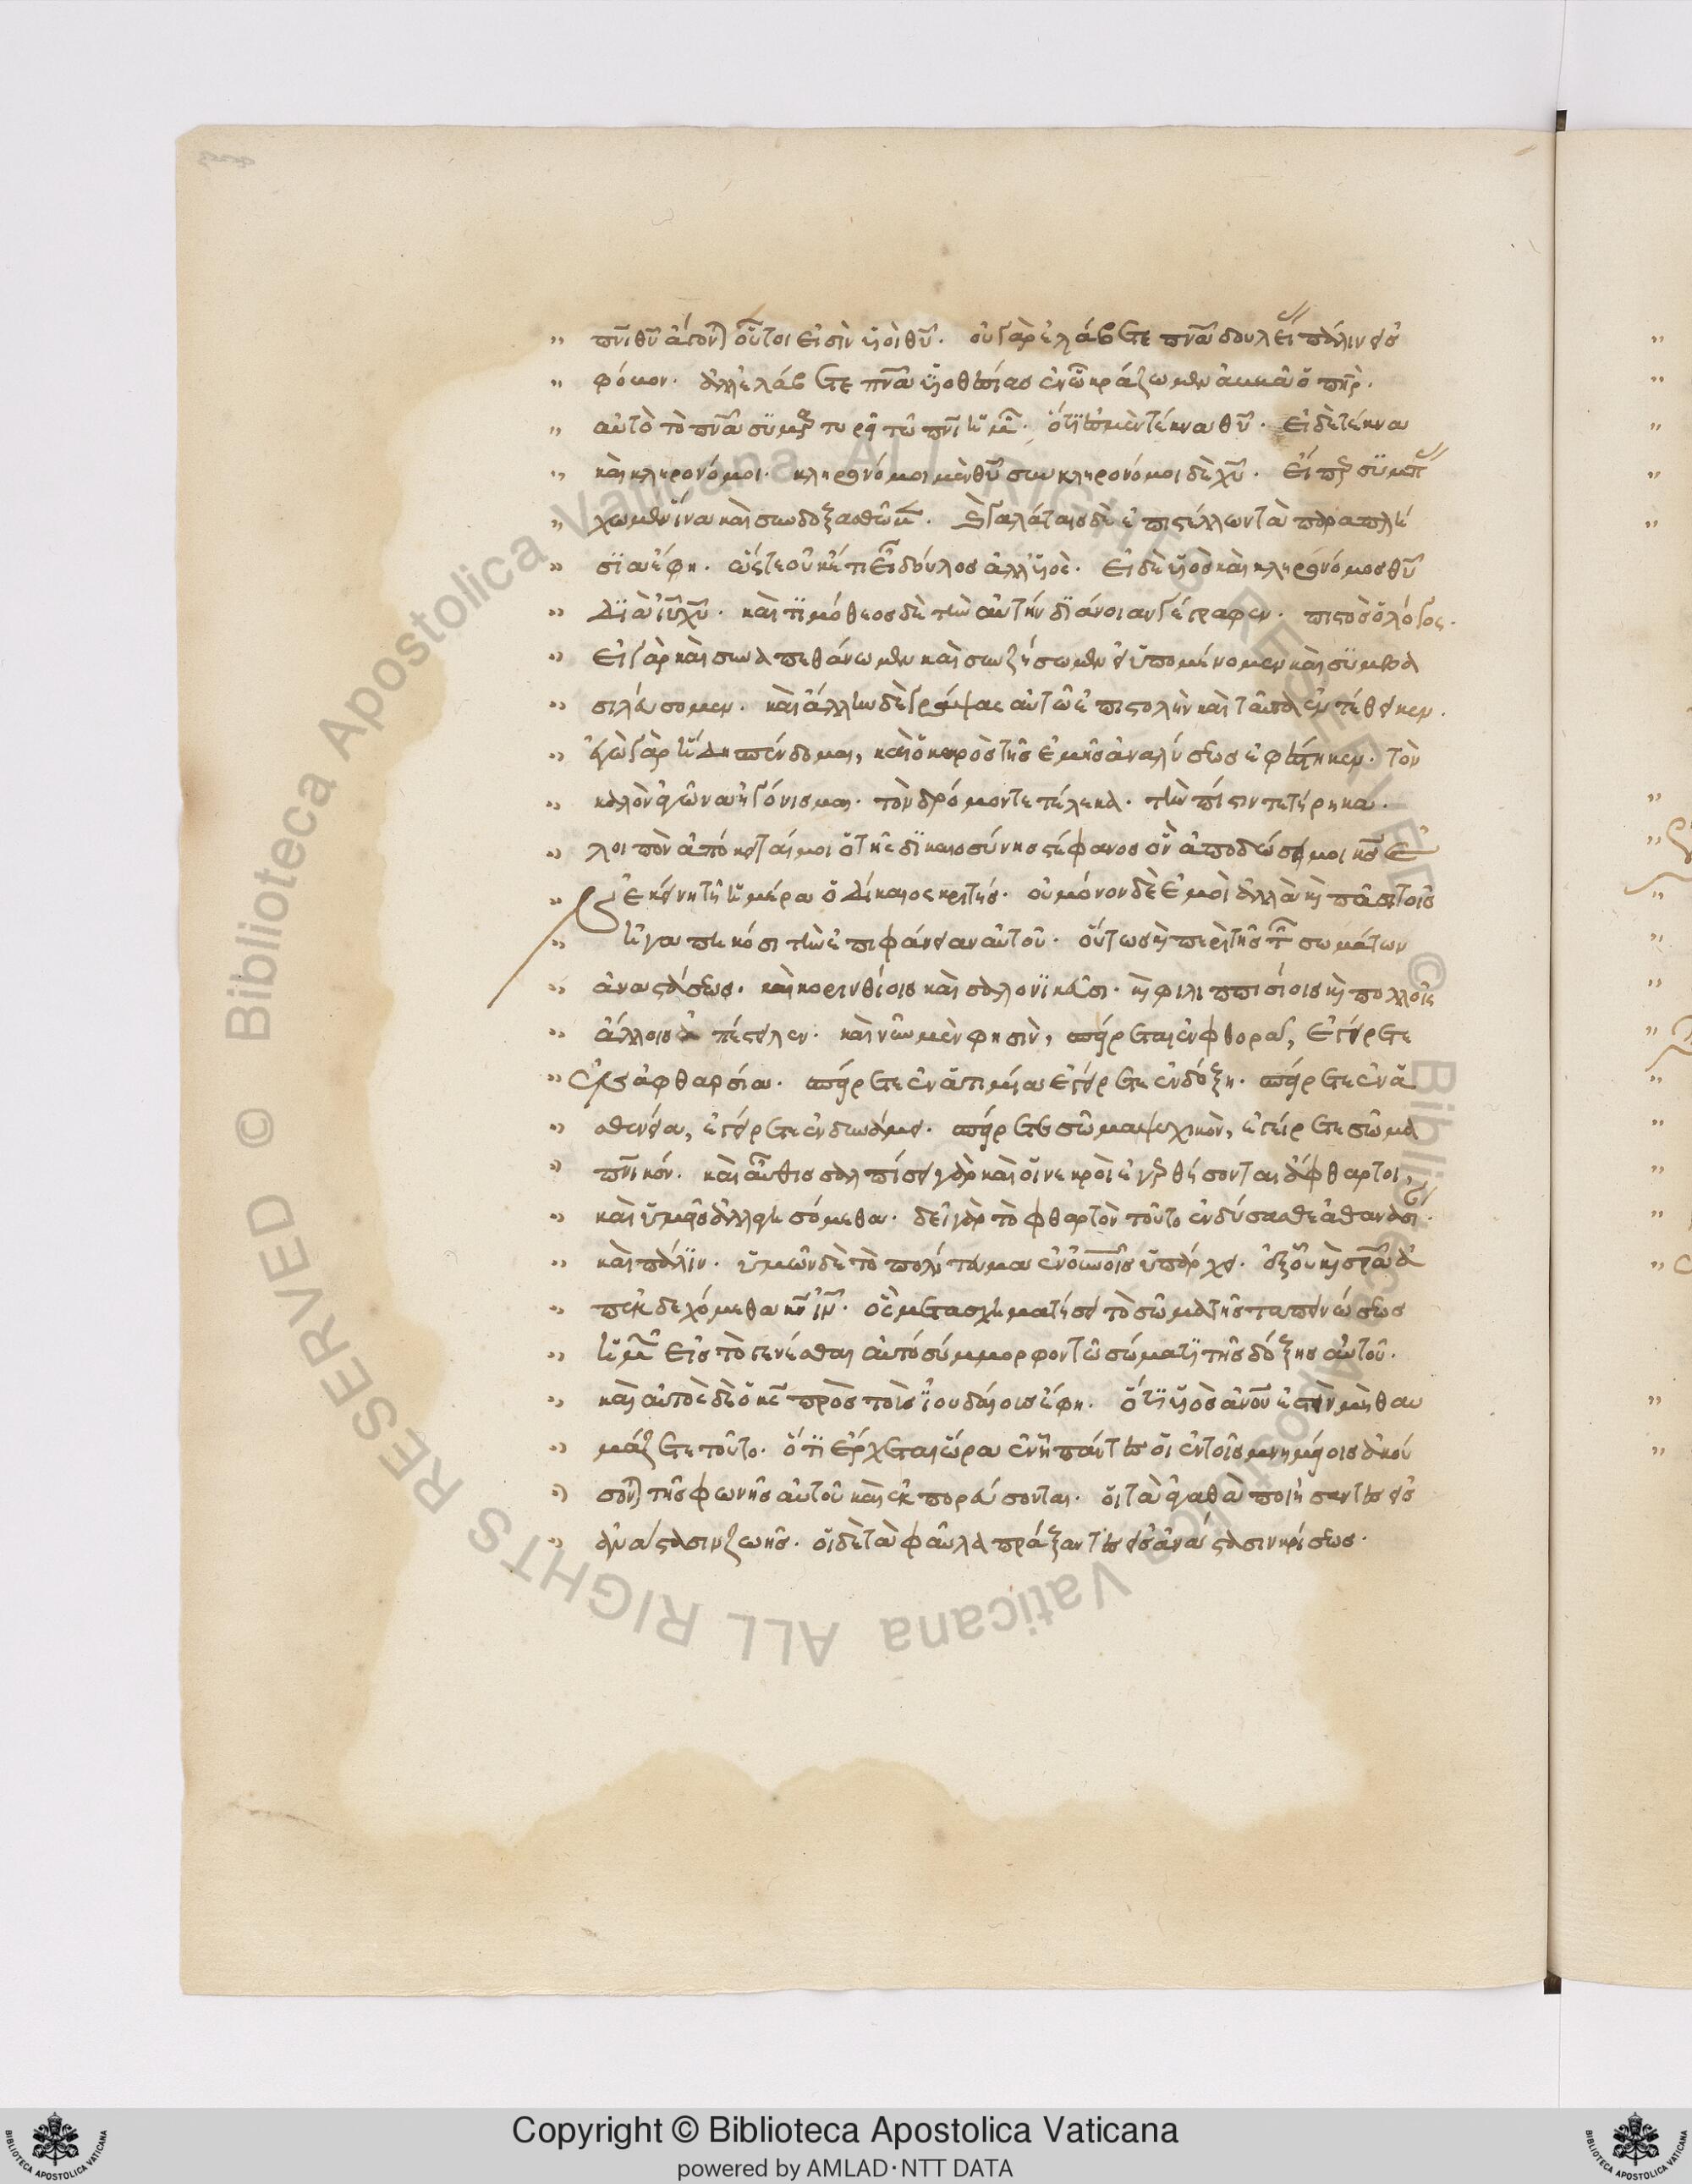 πνι θυ ἄγονται οὗτοι εἰσὶν υἱοὶ θυ. οὐ γὰρ ἐλάβετε πνα δουλείας πάλιν εἰς
φόβον. ἀλλ' ἐλάβετε πνα υἱοθεσίας ἐν ᾧ κράζωμεν ἀββᾶ ὁ πηρ.
αὐτὸ τὸ πνα συμμαρτυρεῖ τῷ πνι ἡμῶν. ὅτι ἐσμὲν τέκνα θυ. εἰ δὲ τέκνα
καὶ κληρονόμοι. κληρονόμοι μὲν θυ συνκληρονόμοι δὲ χυ. εἴπερ συμπάσ
χωμεν ἵνα καὶ συνδοξασθῶμεν. γαλάταις δὲ ἐπιστέλλων τὰ παραπλή
σια ἔφη. ὥστε οὐκέτι εἶ δοῦλος ἀλλ' υἱός. εἰ δὲ υἱὸς καὶ κληρονόμος θυ
διὰ ιυ χυ. καὶ τιμόθεος δὲ τὴν αὐτὴν διάνοιαν γέγραφεν. πιστὸς ὁ λόγος.
εἰ γὰρ καὶ συναπεθάνωμεν καὶ συνζήσωμεν εἰ ὑπομένομεν καὶ συμβα
σιλεύσομεν. καὶ ἄλλην δὲ γράψας αὐτῷ ἐπιστολὴν καὶ ταῦτα ἐντέθεικεν.
ἐγὼ γὰρ ἤδη σπένδομαι, καὶ ὁ καιρὸς τῆς ἐμῆς ἀναλύσεως ἐφέστηκεν. τὸν
καλὸν ἀγῶνα ἠγόνισμαι. τὸν δρόμον τετέλεκα. τὴν πίστιν τετήρηκα.
λοιπὸν ἀπόκειταί μοι ὁ τῆς δικαιοσύνης στέφανος ὃν ἀποδώσει μοι κς ἐν
ἐκείνη τῇ ἡμέρα ὁ δίκαιος κριτής. οὐ μόνον δὲ ἐμοὶ ἀλλὰ καὶ πᾶσι τοῖς
ἠγαπηκόσι τὴν ἐπιφάνειαν αὐτοῦ. οὕτως καὶ περὶ τῆς τῶν σωμάτων
ἀναστάσεως. καὶ κορινθίοις καὶ σαλονικεῦσι. καὶ φιλιππισίοις καὶ πολλοῖς
ἄλλοις ἐπέστειλεν. καὶ νῦν μὲν φησὶν, σπείρεται ἐν φθορᾶ, ἐγείρετε
ἐν ἀφθαρσία. σπείρετε ἐν ἀτιμία ἐγείρετε ἐν δόξη. σπείρετε ἐν ἀ
σθενεία, ἐγείρετε ἐν δυνάμει. σπείρετε σῶμα ψυχικὸν, ἐγείρετε σῶμα
πνικόν. καὶ αὖθις σαλπίσει γὰρ καὶ οἱ νεκροὶ ἐγερθήσονται ἄφθαρτοι,
καὶ ὑμεῖς ἀλλαγησόμεθα. δεῖ γὰρ τὸ φθαρτὸν τοῦτο ἐνδύσασθε ἀθανασίαν.
καὶ πάλιν. ὑμῶν δὲ τὸ πολίτευμα ἐν οὐνοῖς ὑπάρχει. ἐξ οὗ καὶ σρα ἀ
πεκδεχόμεθα κν ιν. ὃς μετασχηματίσει τὸ σῶμα τῆς ταπεινώσεως
ἡμῶν εἰς τὸ γενέσθαι αὐτὸ σύμμορφον τῷ σώματι τῆς δόξης αὐτοῦ.
καὶ αὐτὸς δὲ ὁ κς πρὸς τοὺς ἰουδαίοις ἔφη. ὅτι υἱὸς ἀνου ἐστὶν μὴ θαυ
μάζετε τοῦτο. ὅτι ἔρχεται ὥρα ἐν ᾗ πάντες οἱ ἐν τοῖς μνημείοις ἀκού
σονται τῆς φωνῆς αὐτοῦ καὶ ἐκπορεύσονται. οἱ τὰ ἀγαθὰ ποιήσαντες εἰς
ἀνάστασιν ζωῆς. οἱ δὲ τὰ φαῦλα πράξαντες εἰς ἀνάστασιν κρίσεως.
© Biblioteca Apostolica Vaticana ALL RIGHTS RESERVED
© Biblioteca Apostolica Vaticana ALL RIGHTS RESERVED
Copyright © Biblioteca Apostolica Vaticana
powered by AMLAD·NTT DATA